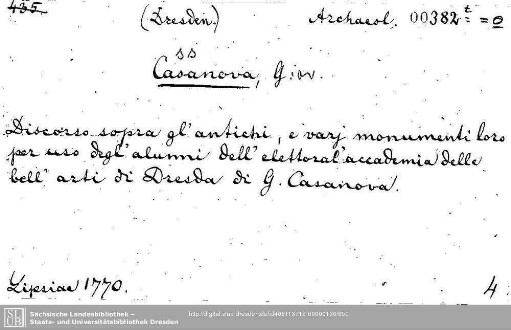 435
(Dresden.)
Archaeol. 00382 t = 0
ss
Casanova, Giov.
Discorso sopra gl'antichi, e varj monumenti loro
per uso degl'alunni dell'elettoral'accademia delle
bell'arti di Dresda di G. Casanova.
Lipsiae 1770.
4
Sächsische Landesbibliothek –
Staats- und Universitätsbibliothek Dresden